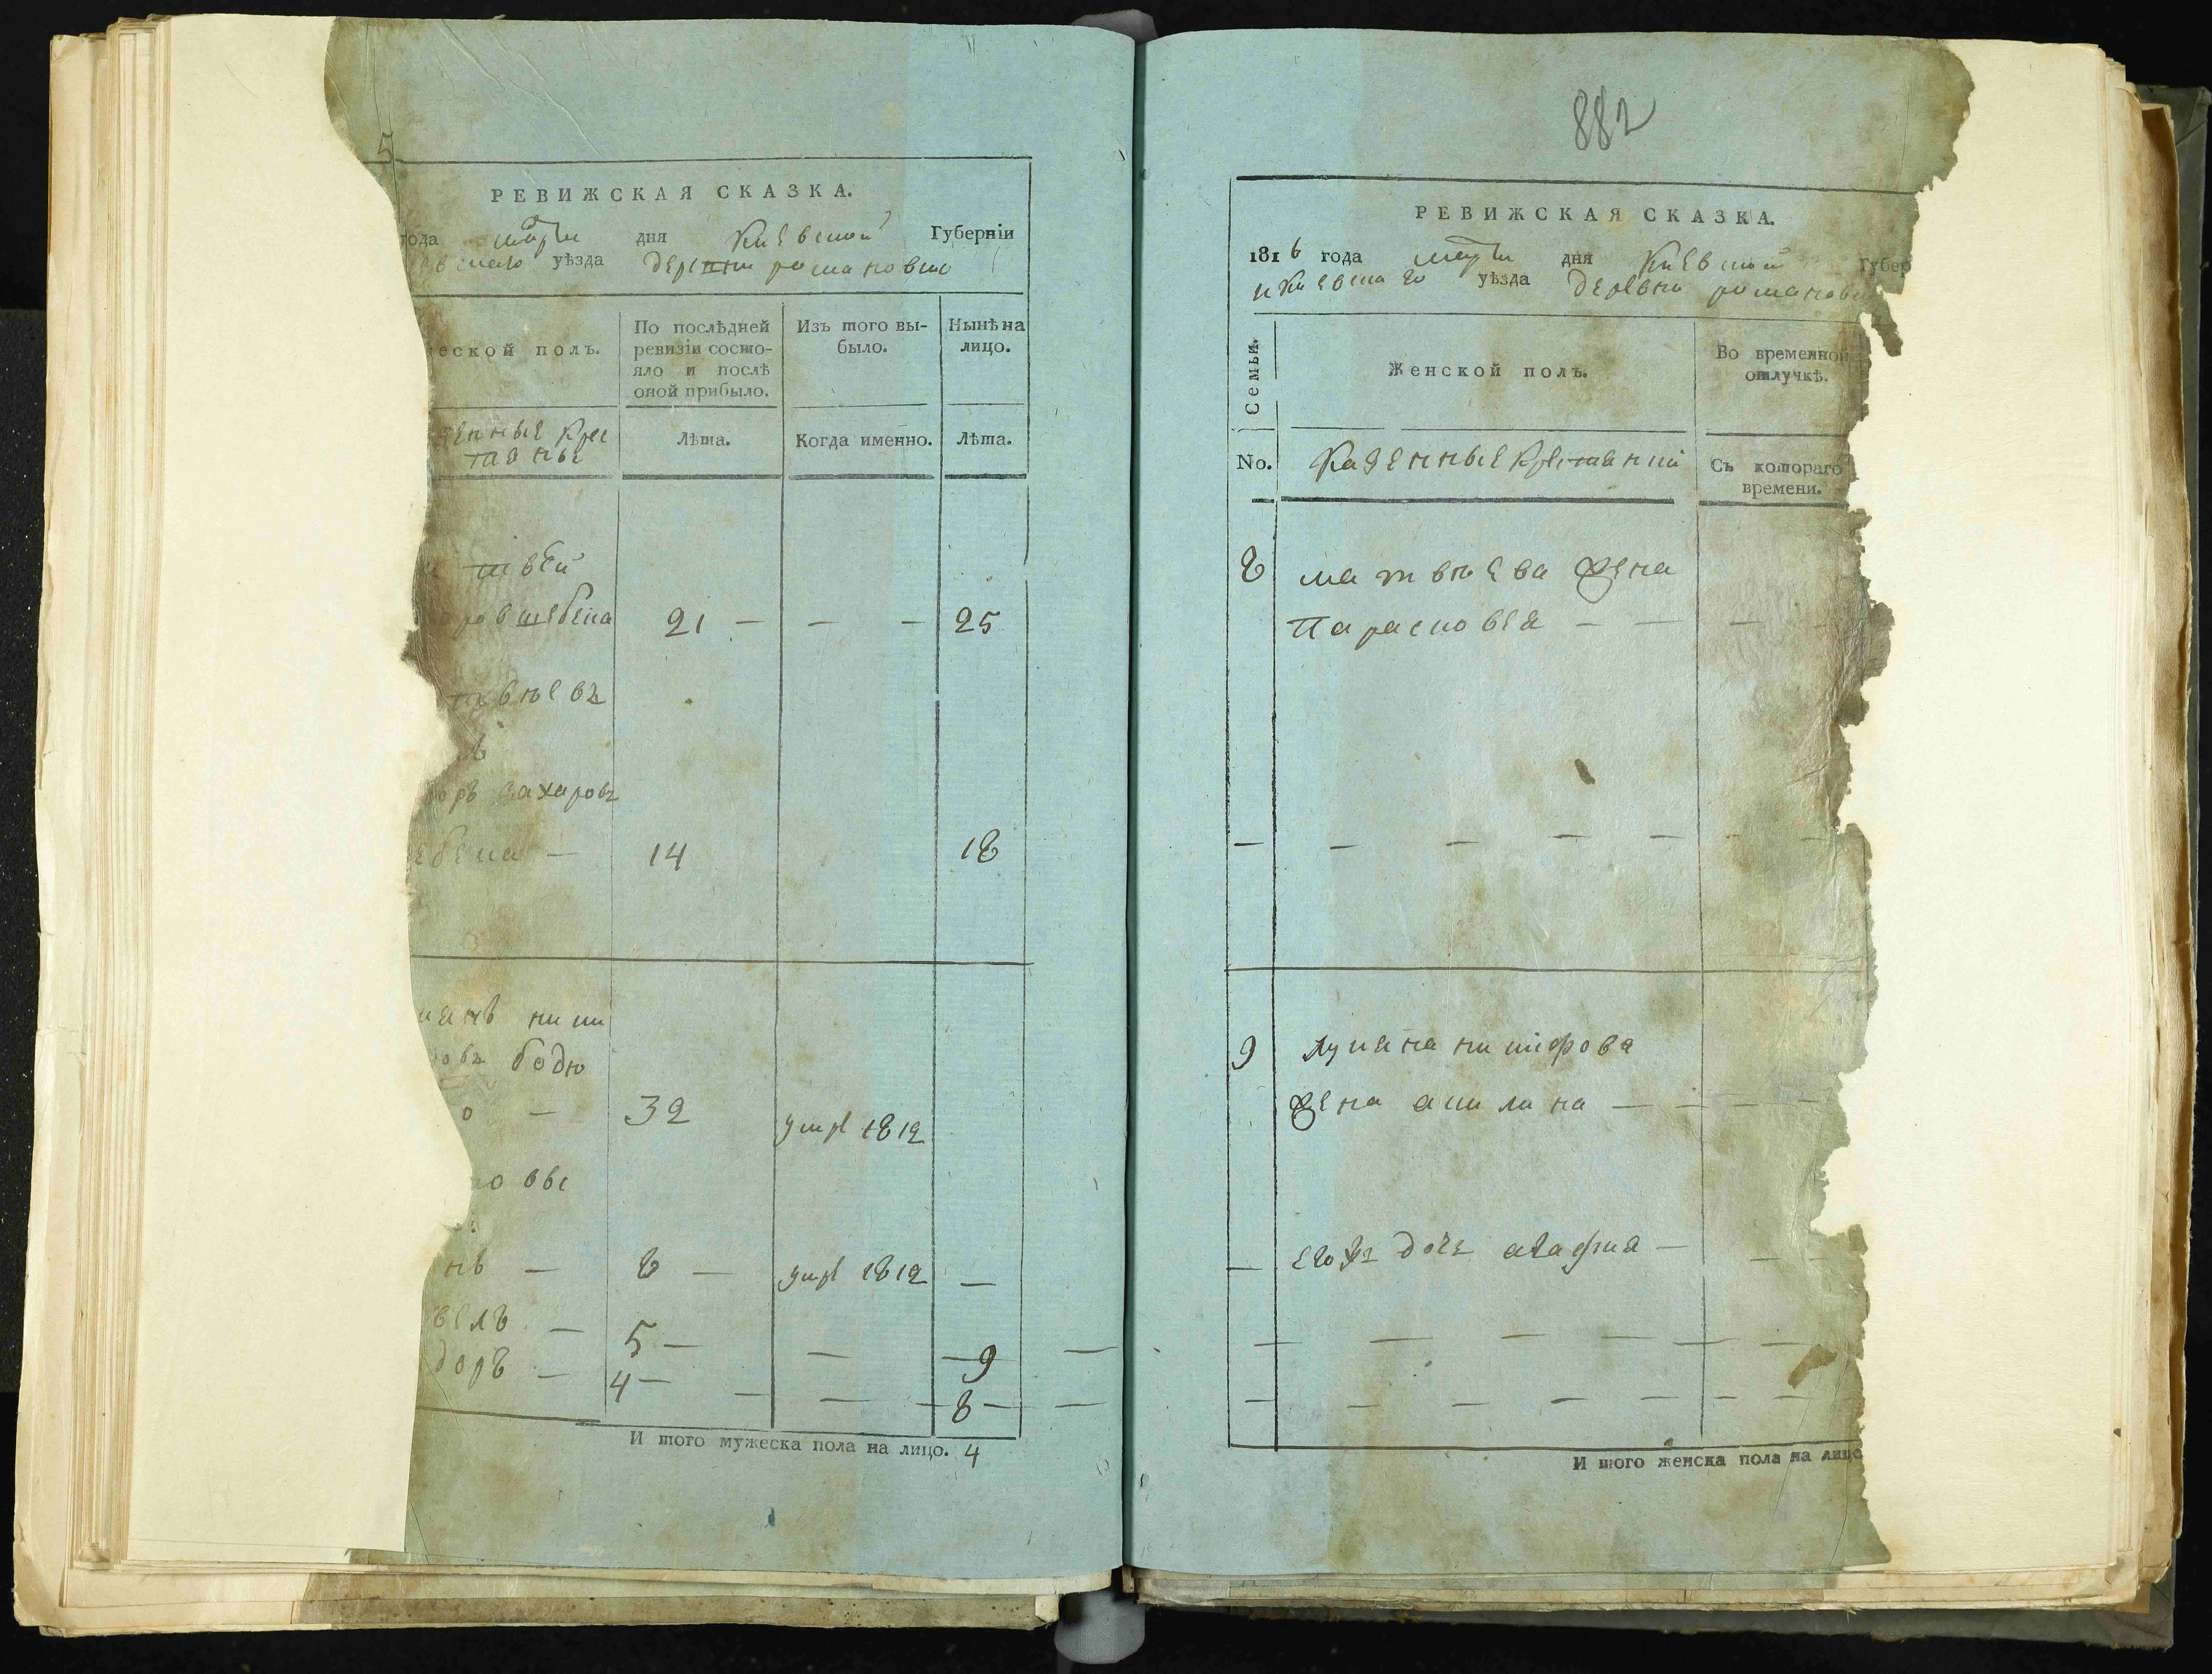 5
РЕВИЖСКАЯ СКАЗКА.
года марта дня Киевской Губернїи
уѣзда деревни романовки
еской полъ.
По послѣдней
ревизїи состо-
яло и послѣ
оной прибыло.
Изъ того вы-
было.
Нынѣ на
лицо.
енные крес
таяны
Лѣта.
Когда именно.
Лѣта.
твей
ров шебека 21 — — — 25
твѣевъ
оръ захаровъ
ебека — 14 18
янъ ники
овъ бодю
о — 32 умре 1812
овы
нъ — 8 — умре 1812 —
велъ — 5 — — 9
доръ — 4 — — — 8 —
И того мужеска пола на лицо. 4
882
РЕВИЖСКАЯ СКАЗКА.
1816 года марта дня Киевской Губер
икиевскаго уѣзда деревни романовки
Семьи.
Женской полъ.
Во временной
отлучкѣ.
No.
Казенные крестянки
Съ котораго
времени.
8 матвѣева жена
Парасковея — — —
9 лукяна никифрова
жена акилина —
егожъ дочь агафия —
И того женска пола на лицо